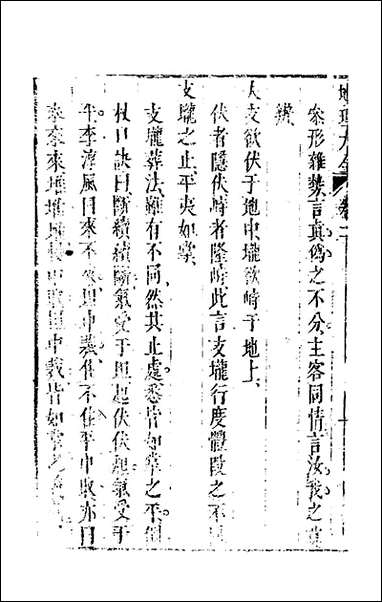 地理大全 卷二
案形雜勢言真偽之不分主客同情言汝我之莫
辨
夫支欲伏于地中壠欲峙于地上
伏者隱伏峙者隆峙此言支壠行度體段之不同
支壠之止平夷如掌
支壠葬法雖有不同然其止處悉皆如掌之平倒
杖口訣曰斷續續斷氣受于坦起伏伏起氣受于
平李淳風曰來不來坦中裁住不住平中取亦曰
來來來堆堆堆 中 中裁皆如掌之